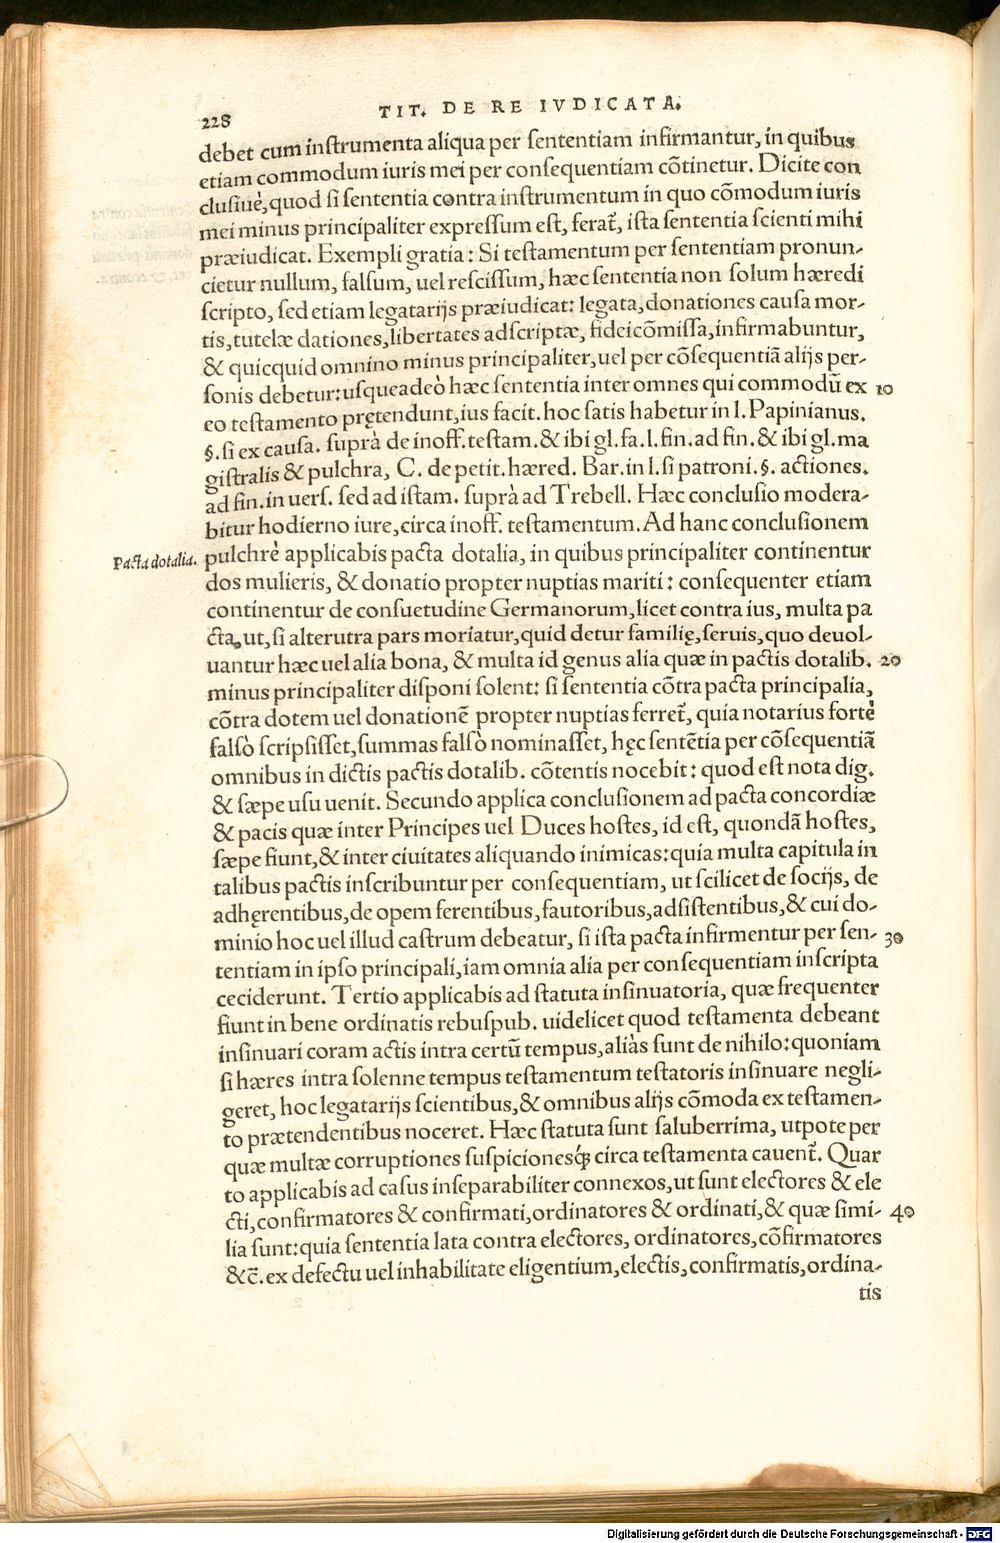 228
TIT. DE RE IVDICATA.
debet cum instrumenta aliqua per sententiam infirmantur, in quibus
etiam commodum iuris mei per consequentiam cõtinetur. Dicite con
clusiuè, quod si sententia contra instrumentum in quo cõmodum iuris
mei minus principaliter expressum est, ferat̃, ista sententia scienti mihi
præiudicat. Exempli gratia: Si testamentum per sententiam pronun-
cietur nullum, falsum, uel rescissum, hæc sententia non solum hæredi
scripto, sed etiam legatarijs præiudicat: legata, donationes causa mor-
tis, tutelæ dationes, libertates adscriptæ, fideicõmissa, infirmabuntur,
& quicquid omnino minus principaliter, uel per cõsequentiã alijs per-
sonis debetur: usqueadeò hæc sententia inter omnes qui commodũ ex 10
eo testamento prętendunt, ius facit. hoc satis habetur in l. Papinianus.
§. si ex causa. suprà de inoff. testam. & ibi gl. fa. l. fin. ad fin. & ibi gl. ma
gistralis & pulchra, C. de petit. hæred. Bar. in l. si patroni. §. actiones.
ad fin. in uers. sed ad istam. suprà ad Trebell. Hæc conclusio modera-
bitur hodierno iure, circa inoff. testamentum. Ad hanc conclusionem
Pacta dotalia. pulchrè applicabis pacta dotalia, in quibus principaliter continentur
dos mulieris, & donatio propter nuptias mariti: consequenter etiam
continentur de consuetudine Germanorum, licet contra ius, multa pa
cta, ut, si alterutra pars moriatur, quid detur familię, seruis, quo deuol-
uantur hæc uel alia bona, & multa id genus alia quæ in pactis dotalib. 20
minus principaliter disponi solent: si sententia cõtra pacta principalia,
cõtra dotem uel donationẽ propter nuptias ferret̃, quia notarius fortè
falsò scripsisset, summas falsò nominasset, hęc sentẽtia per cõsequentiã
omnibus in dictis pactis dotalib. cõtentis nocebit: quod est nota dig.
& sæpe usu uenit. Secundo applica conclusionem ad pacta concordiæ
& pacis quæ inter Principes uel Duces hostes, id est, quondã hostes,
sæpe fiunt, & inter ciuitates aliquando inimicas: quia multa capitula in
talibus pactis inscribuntur per consequentiam, ut scilicet de socijs, de
adhęrentibus, de opem ferentibus, fautoribus, adsistentibus, & cui do-
minio hoc uel illud castrum debeatur, si ista pacta infirmentur per sen- 30
tentiam in ipso principali, iam omnia alia per consequentiam inscripta
ceciderunt. Tertio applicabis ad statuta insinuatoria, quæ frequenter
fiunt in bene ordinatis rebuspub. uidelicet quod testamenta debeant
insinuari coram actis intra certũ tempus, aliàs sunt de nihilo: quoniam
si hæres intra solenne tempus testamentum testatoris insinuare negli-
geret, hoc legatarijs scientibus, & omnibus alijs cõmoda ex testamen-
to prætendentibus noceret. Hæc statuta sunt saluberrima, utpote per
quæ multæ corruptiones suspicionesq́; circa testamenta cauent̃. Quar
to applicabis ad casus inseparabiliter connexos, ut sunt electores & ele
cti, confirmatores & confirmati, ordinatores & ordinati, & quæ simi- 40
lia sunt: quia sententia lata contra electores, ordinatores, cõfirmatores
& c̃. ex defectu uel inhabilitate eligentium, electis, confirmatis, ordina-
tis
Digitalisierung gefördert durch die Deutsche Forschungsgemeinschaft - DFG